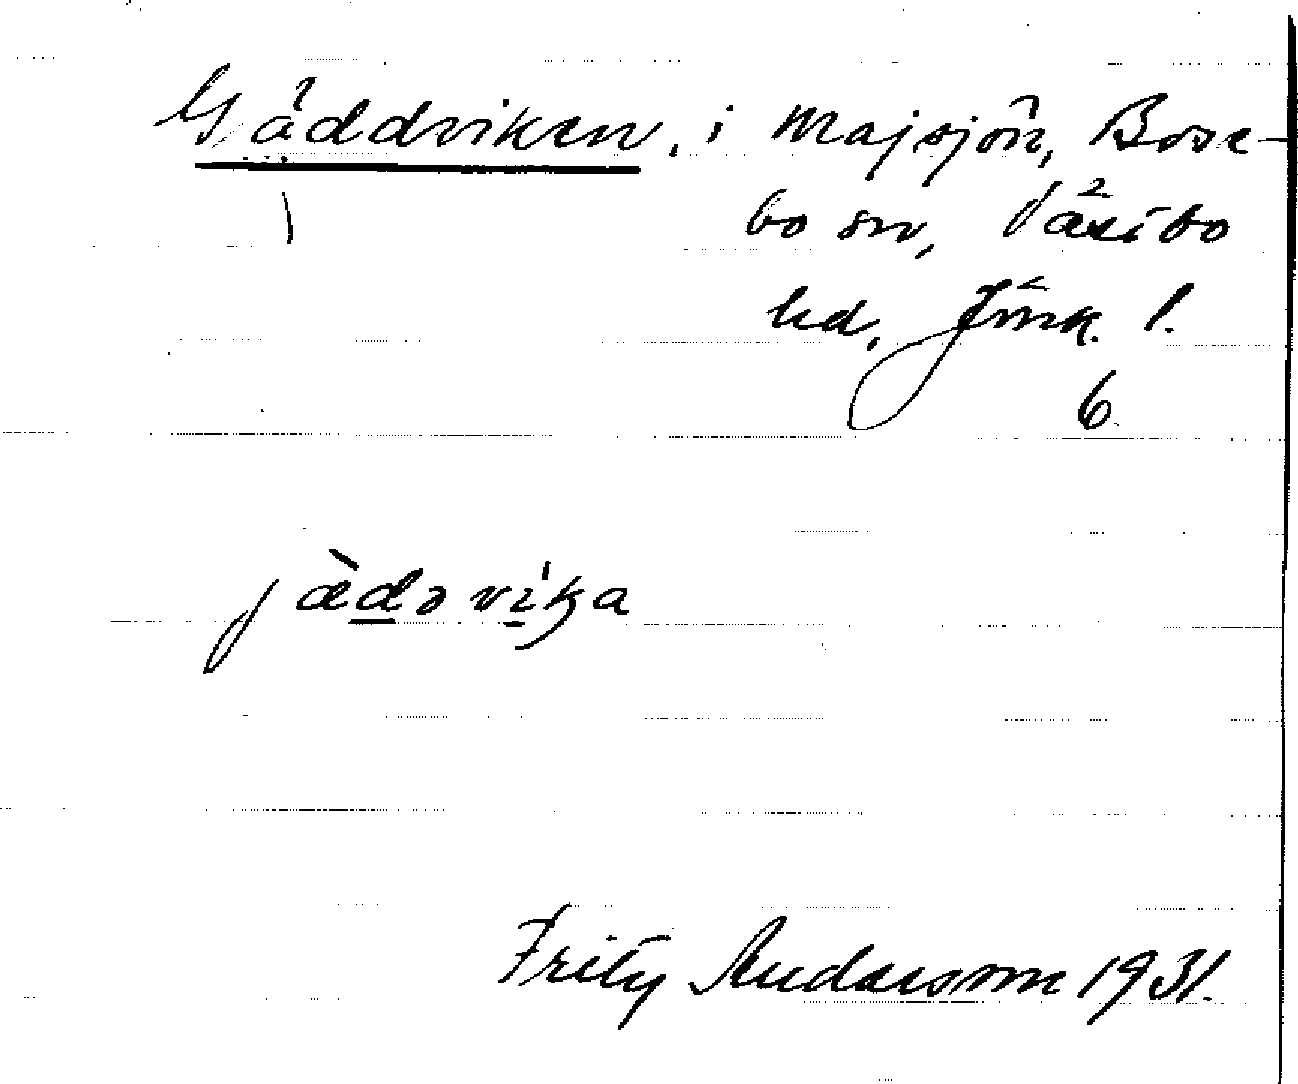 Gäddviken, i Majsjön, Bose-
bo sn, Västbo
hd, Jönk. l.
6
jàdəvika
Fritz Andersson 1931.